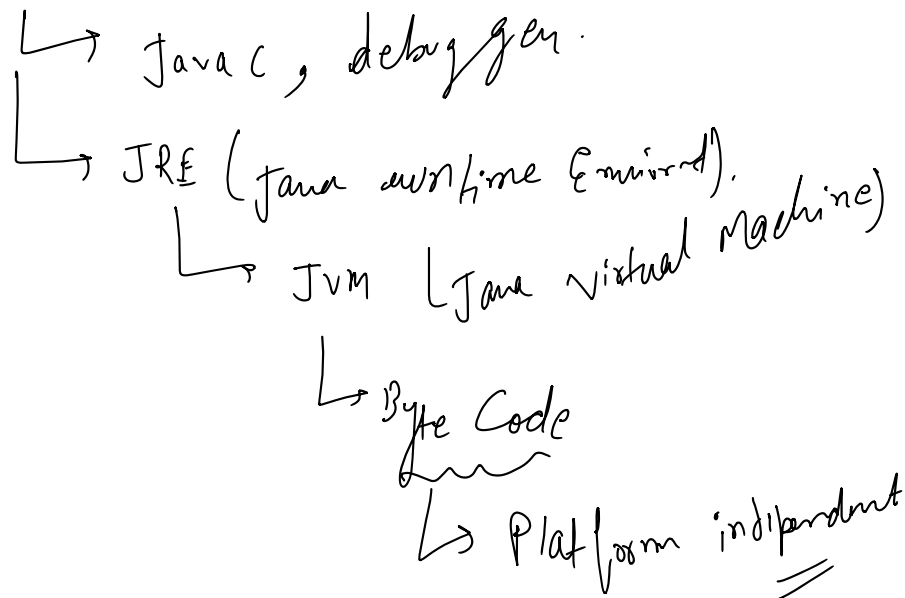 Javac, debugger.
JRE (Java runtime Enviornt).
JVM (Java Virtual Machine)
Byte Code
Platform indipendent